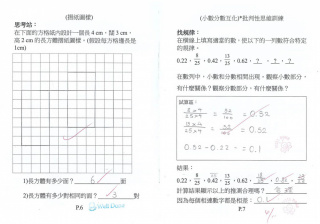 (摺紙圖樣)
思考站:
在下面的方格紙內設計一個長 4 cm、闊 3 cm、
高 2 cm 的長方體摺紙圖樣。(假設每方格邊長是
1cm)
1)長方體有多少面? 6 面
2)長方體有多少對相同的面? 3 對
P.6
(小數分數互化)*批判性思維訓練
找規律:
在橫線上填寫適當的數,使以下的一列數符合特定
的規律。
0.22, 8/25, 0.42, 13/25, 0.62, ?, ?, ?
在數列中,小數和分數相間出現。觀察小數部分,
有什麼關係?觀察分數部分,有什麼關係?
試算區:
8×4/25×4 = 32/100 = 0.32
13×4/25×4 = 52/100 = 0.52
0.32-0.22=0.1
結果:
0.22, 8/25, 0.42, 13/25, 0.62,
計算結果顯示以上的推測合理嗎?
因為每個相連數字都是相差
P.7